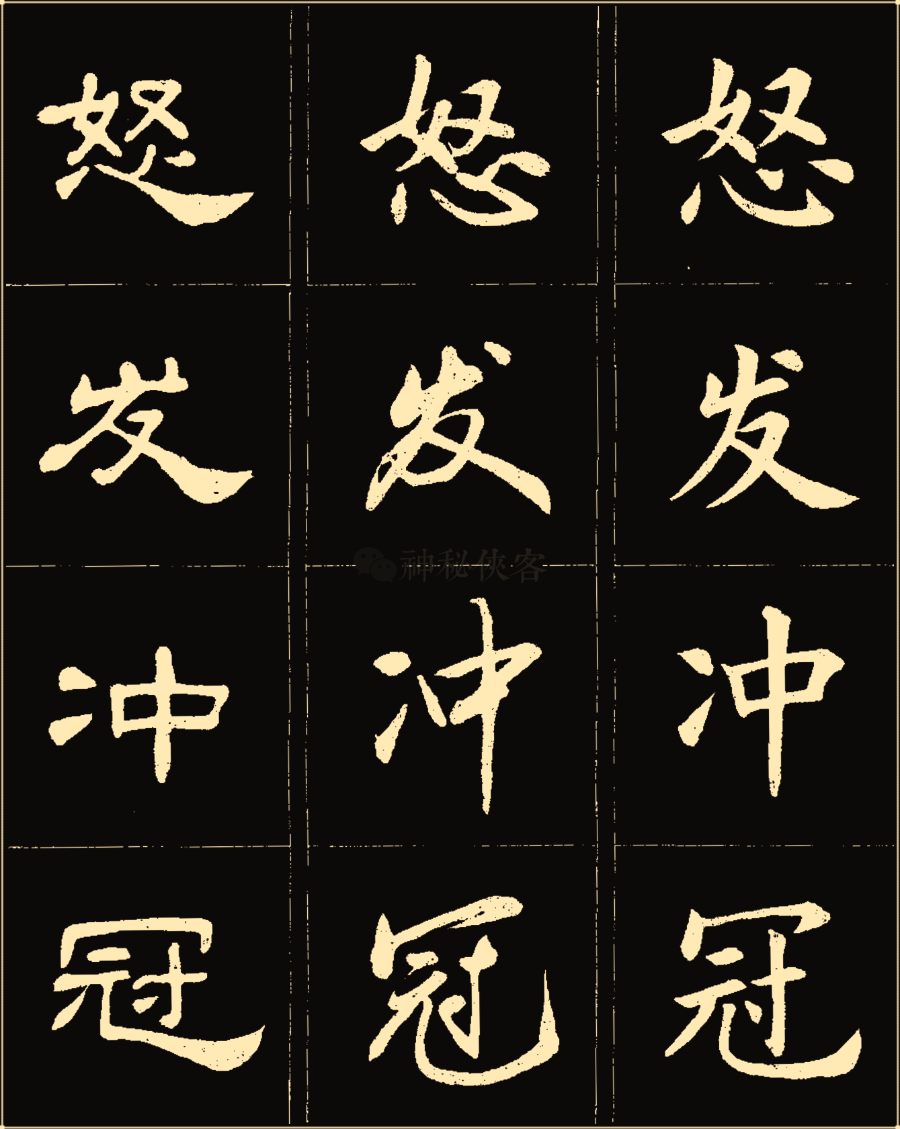 怒 怒 怒
发 发 发
神秘俠客
冲 冲 冲
冠 冠 冠